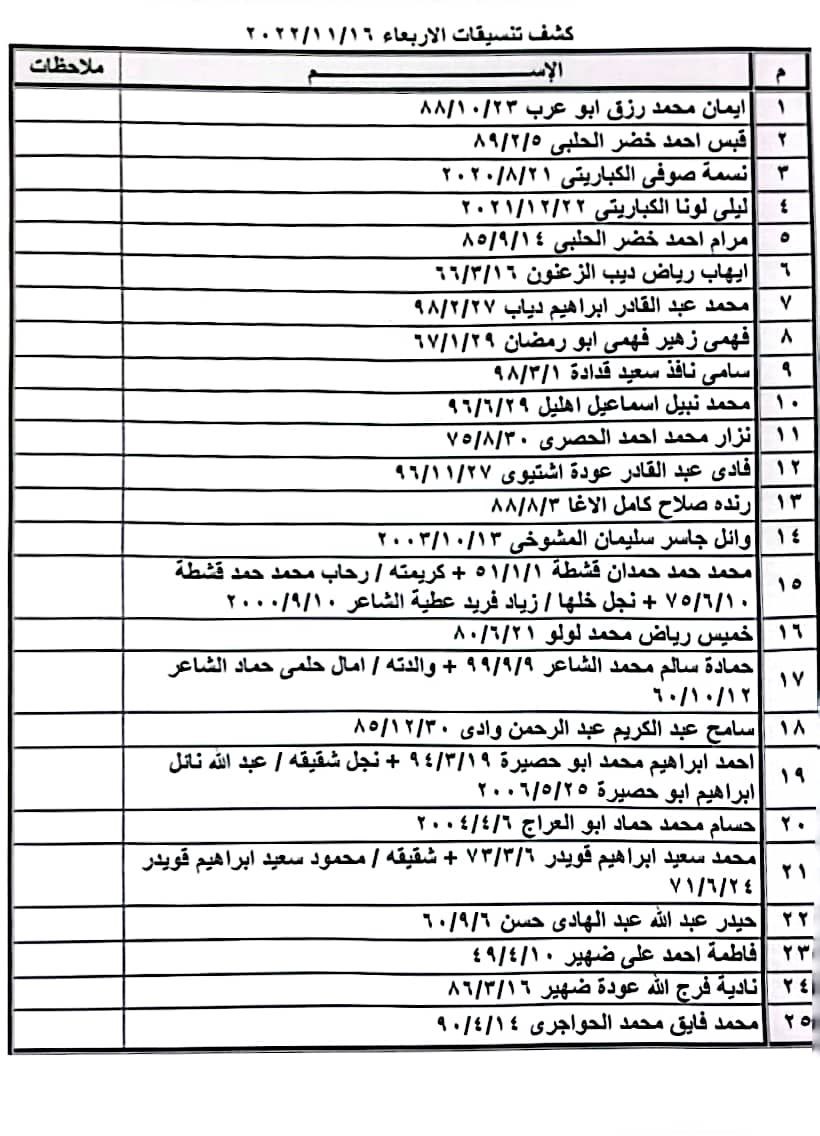 كشف تنسيقات الاربعاء ٢٠٢٢/١١/١٦
م الإســــــــــم ملاحظات
١ ايمان محمد رزق ابو عرب ٨٨/١٠/٢٣
٢ قبس احمد خضر الحلبى ٨٩/٢/٥
٣ نسمة صوفى الكباريتى ٢٠٢٠/٨/٢١
٤ ليلى لونا الكباريتى ٢٠٢١/١٢/٢٢
٥ مرام احمد خضر الحلبى ٨٥/٩/١٤
٦ ايهاب رياض ديب الزعنون ٦٦/٣/١٦
٧ محمد عبد القادر ابراهيم دياب ٩٨/٢/٢٧
٨ فهمى زهير فهمى ابو رمضان ٦٧/١/٢٩
٩ سامى نافذ سعيد قدادة ٩٨/٣/١
١٠ محمد نبيل اسماعيل اهليل ٩٦/٦/٢٩
١١ نزار محمد احمد الحصرى ٧٥/٨/٣٠
١٢ فادى عبد القادر عودة اشتيوى ٩٦/١١/٢٧
١٣ رنده صلاح كامل الاغا ٨٨/٨/٣
١٤ وائل جاسر سليمان المشوخى ٢٠٠٣/١٠/١٣
١٥ محمد حمد حمدان قشطة ٥١/١/١ + كريمته / رحاب محمد حمد قشطة
٧٥/٦/١٠ + نجل خلها / زياد فريد عطية الشاعر ٢٠٠٠/٩/١٠
١٦ خميس رياض محمد لولو ٨٠/٦/٢١
١٧ حمادة سالم محمد الشاعر ٩٩/٩/٩ + والدته / امال حلمى حماد الشاعر
٦٠/١٠/١٢
١٨ سامح عبد الكريم عبد الرحمن وادى ٨٥/١٢/٣٠
١٩ احمد ابراهيم محمد ابو حصيرة ٩٤/٣/١٩ + نجل شقيقه / عبد الله نائل
ابراهيم ابو حصيرة ٢٠٠٦/٥/٢٥
٢٠ حسام محمد حماد ابو العراج ٢٠٠٤/٤/٦
٢١ محمد سعيد ابراهيم قويدر ٧٣/٣/٦ + شقيقه / محمود سعيد ابراهيم قويدر
٧١/٦/٢٤
٢٢ حيدر عبد الله عبد الهادى حسن ٦٠/٩/٦
٢٣ فاطمة احمد على ضهير ٤٩/٤/١٠
٢٤ نادية فرج الله عودة ضهير ٨٦/٣/١٦
٢٥ محمد فايق محمد الحواجرى ٩٠/٤/١٤